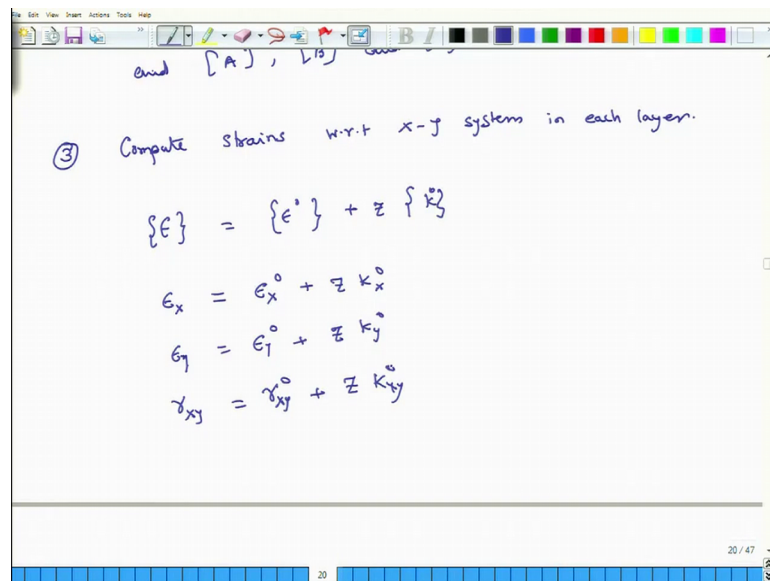 File Edit View Insert Actions Tools Help
and [A], [B]
③ Compute strains w.r.t x-y system in each layer.
{ϵ} = {ϵ°} + z {k°}
ϵx = ϵx° + z kx°
ϵy = ϵy° + z ky°
γxy = γxy° + z kxy°
20 / 47
20